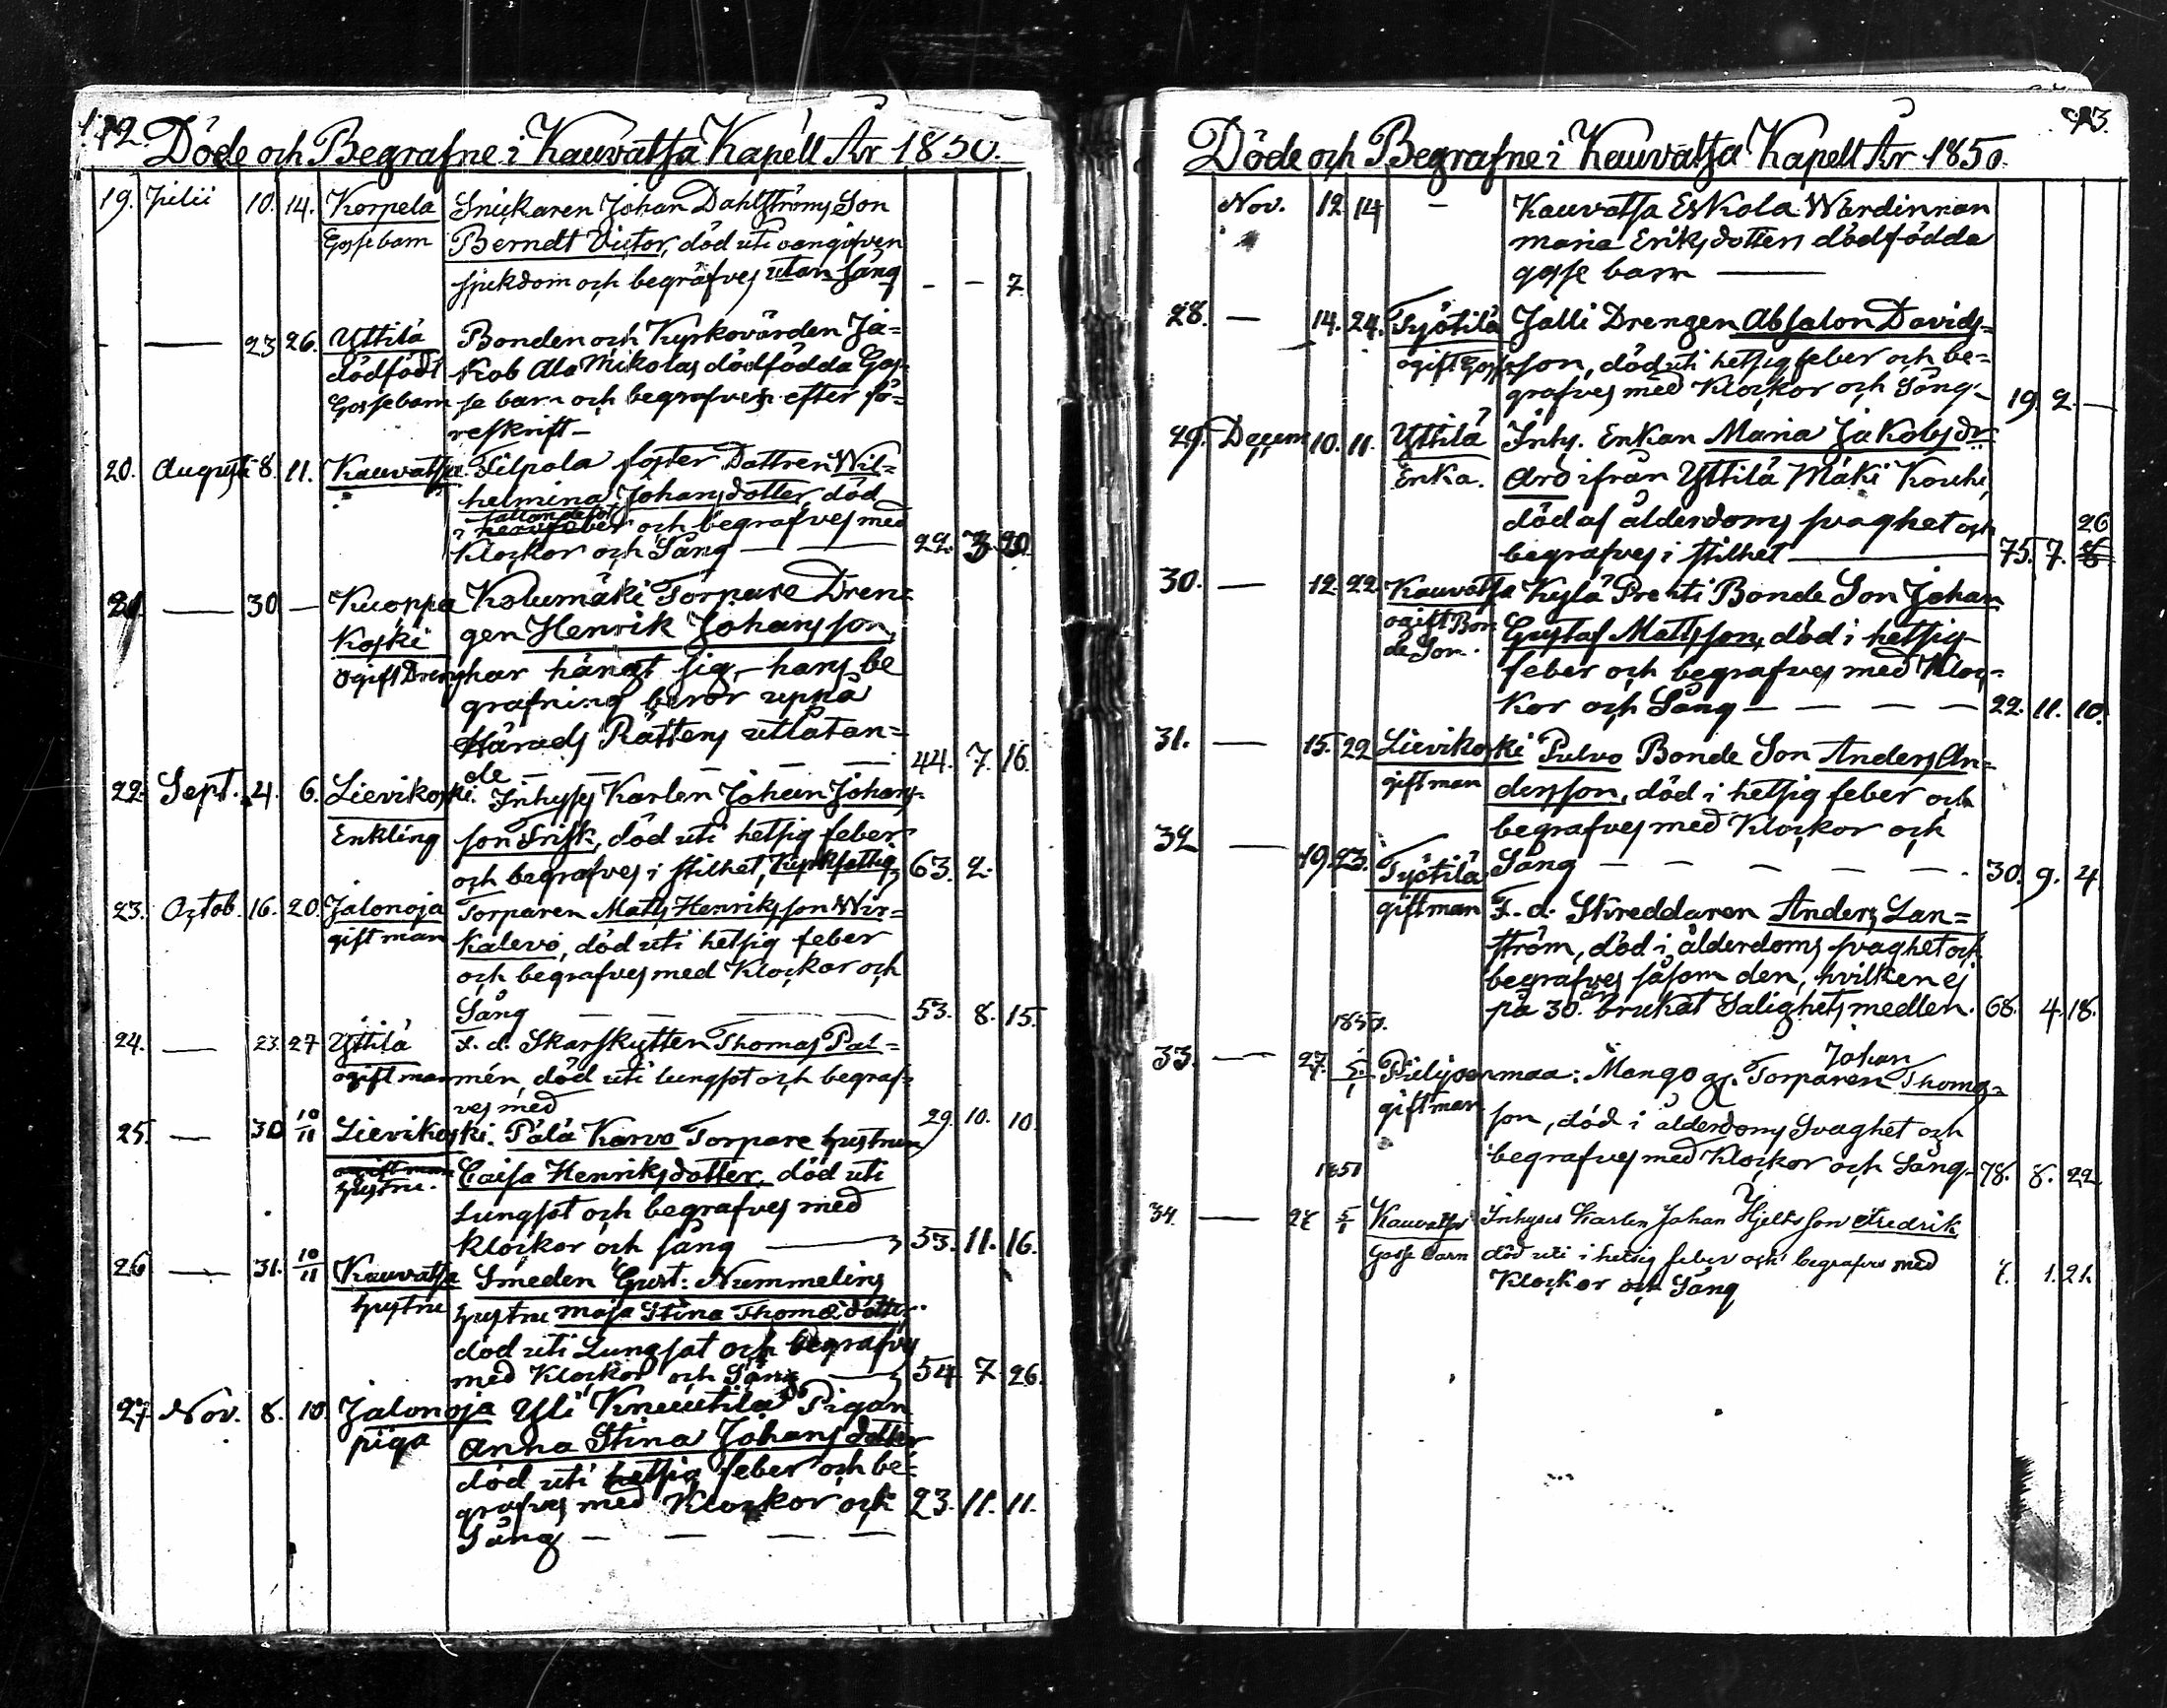 142.
Döde och Begrafne i Kauvatsa Kapell År 1850.
19. Julii 10. 14. Korpela Snickaren Johan Dahlströms Son
Gossebarn Berndt Victor, död uti oangifven
sjukdom och begrafves utan sång - - 7.
- — 23 26. Yttilä Bonden och Kyrkovärden Ja=
dödfödt kob Ala Mikolas dödfödda Gos=
Gossebarn se barn och begrafves efter fö=
reskrift —
20. Augusti 8. 11. Kauvatsa. Tilpola foster Dottren Wil=
helmina Johansdotter, död
i fallandesot nervfeber och begrafves med
Klockor och Sång — — 22. 3. 20.
21 — 30 — Kuoppa Kolumäki Torpare Dren=
Koski gen Henrik Johansson,
ogift Dreng har hängt sig, hans be
grafning beror uppå
Härads Rättens utlåtan=
de — — — — 44. 7. 16.
22. Sept. 4. 6. Lievikoski. Inhyses Karlen Johan Johans-
Enkling son Frisk, död uti hetsig feber
och begrafves i stilhet, 63. 2.
23. Octob. 16. 20. Jalonoja Torparen Mats Henriksson Wir=
gift man kalevo, död uti hetsig feber
och begrafves med Klockor och
Sång — — — — 53. 8. 15.
24. — 23. 27 Yttilä F. d. Skarskytten Thomas Pal=
ogift man mén, död uti lungsot och begraf=
ves med 29. 10. 10.
25. — 30 10/11 Lievikoski. Pälä Karvo Torpare hustrun
ogift man Caisa Henriksdotter, död uti
hustru. Lungsot och begrafves med
klockor och sång — 53. 11. 16.
26 — 31. 10/11 Kauvatsa Smeden Gust: Nummelins
hustru hustru Maja Stina Thomædotter
död uti Lungsot och begrafves
med Klockor och Sång — 54 7 26.
27. Nov. 8. 10. Jalonoja Yli Knuutila Pigan
piga Anna Stina Johansdotter
död uti hetsig feber och be=
grafves med Klockor och 23. 11. 11.
Sång — — — —
Döde och Begrafne i Kauvatsa Kapell År 1850.
Nov. 12 14 — Kauvatsa Eskola Wärdinnan
Maria Eriksdotters dödfödda
gosse barn —
28. — 14. 24. Työtilä Jalli Drengen Absalon Davids=
ogift Gosse son, död uti hetsig feber och be=
grafves med Klockor och Sång. 19. 2. —
29. Decem 10. 11. Yttilä Inhy. Enkan Maria Jakobsdr
Enka. Aro ifrån Yttilä Mäki Kouhi,
död af ålderdoms svaghet och 26
begrafves i stilhet — 75. 7. 8
30. — 12. 22. Kauvatsa Kylä Prehti Bonde Son Johan
ogift Bon Gustaf Mattsson, död i hetsig
de Son. feber och begrafves med Kloc=
kor och Sång — — — — 22. 11. 10.
31. — 15. 22 Lievikoski Pulvo Bonde Son Anders An=
gift man dersson, död i hetsig feber och
begrafves med Klockor och
Sång — — — — 30. 9. 4
32 — 19. 23. Työtilä
gift man F. d. Skreddaren Anders Lan=
ström, död i ålderdoms svaghet och
begrafves såsom den, hvilken ej
på 30. år brukat Salighets medlen. 68. 4. 18.
33. — 27. 5/1 Piilijoenmaa: Mango gs. Torparen Johan Thoms=
gift man son, död i ålderdoms Svaghet och
begrafves med Klockor och Sång. 78. 8. 22
1851
34. — 5/1 Kauvatsa Inhyses Karlen Johan Hjelts son Fredrik
Gosse barn död uti i hetsig feber och begrafves med
Klockor och Sång 1. 21.